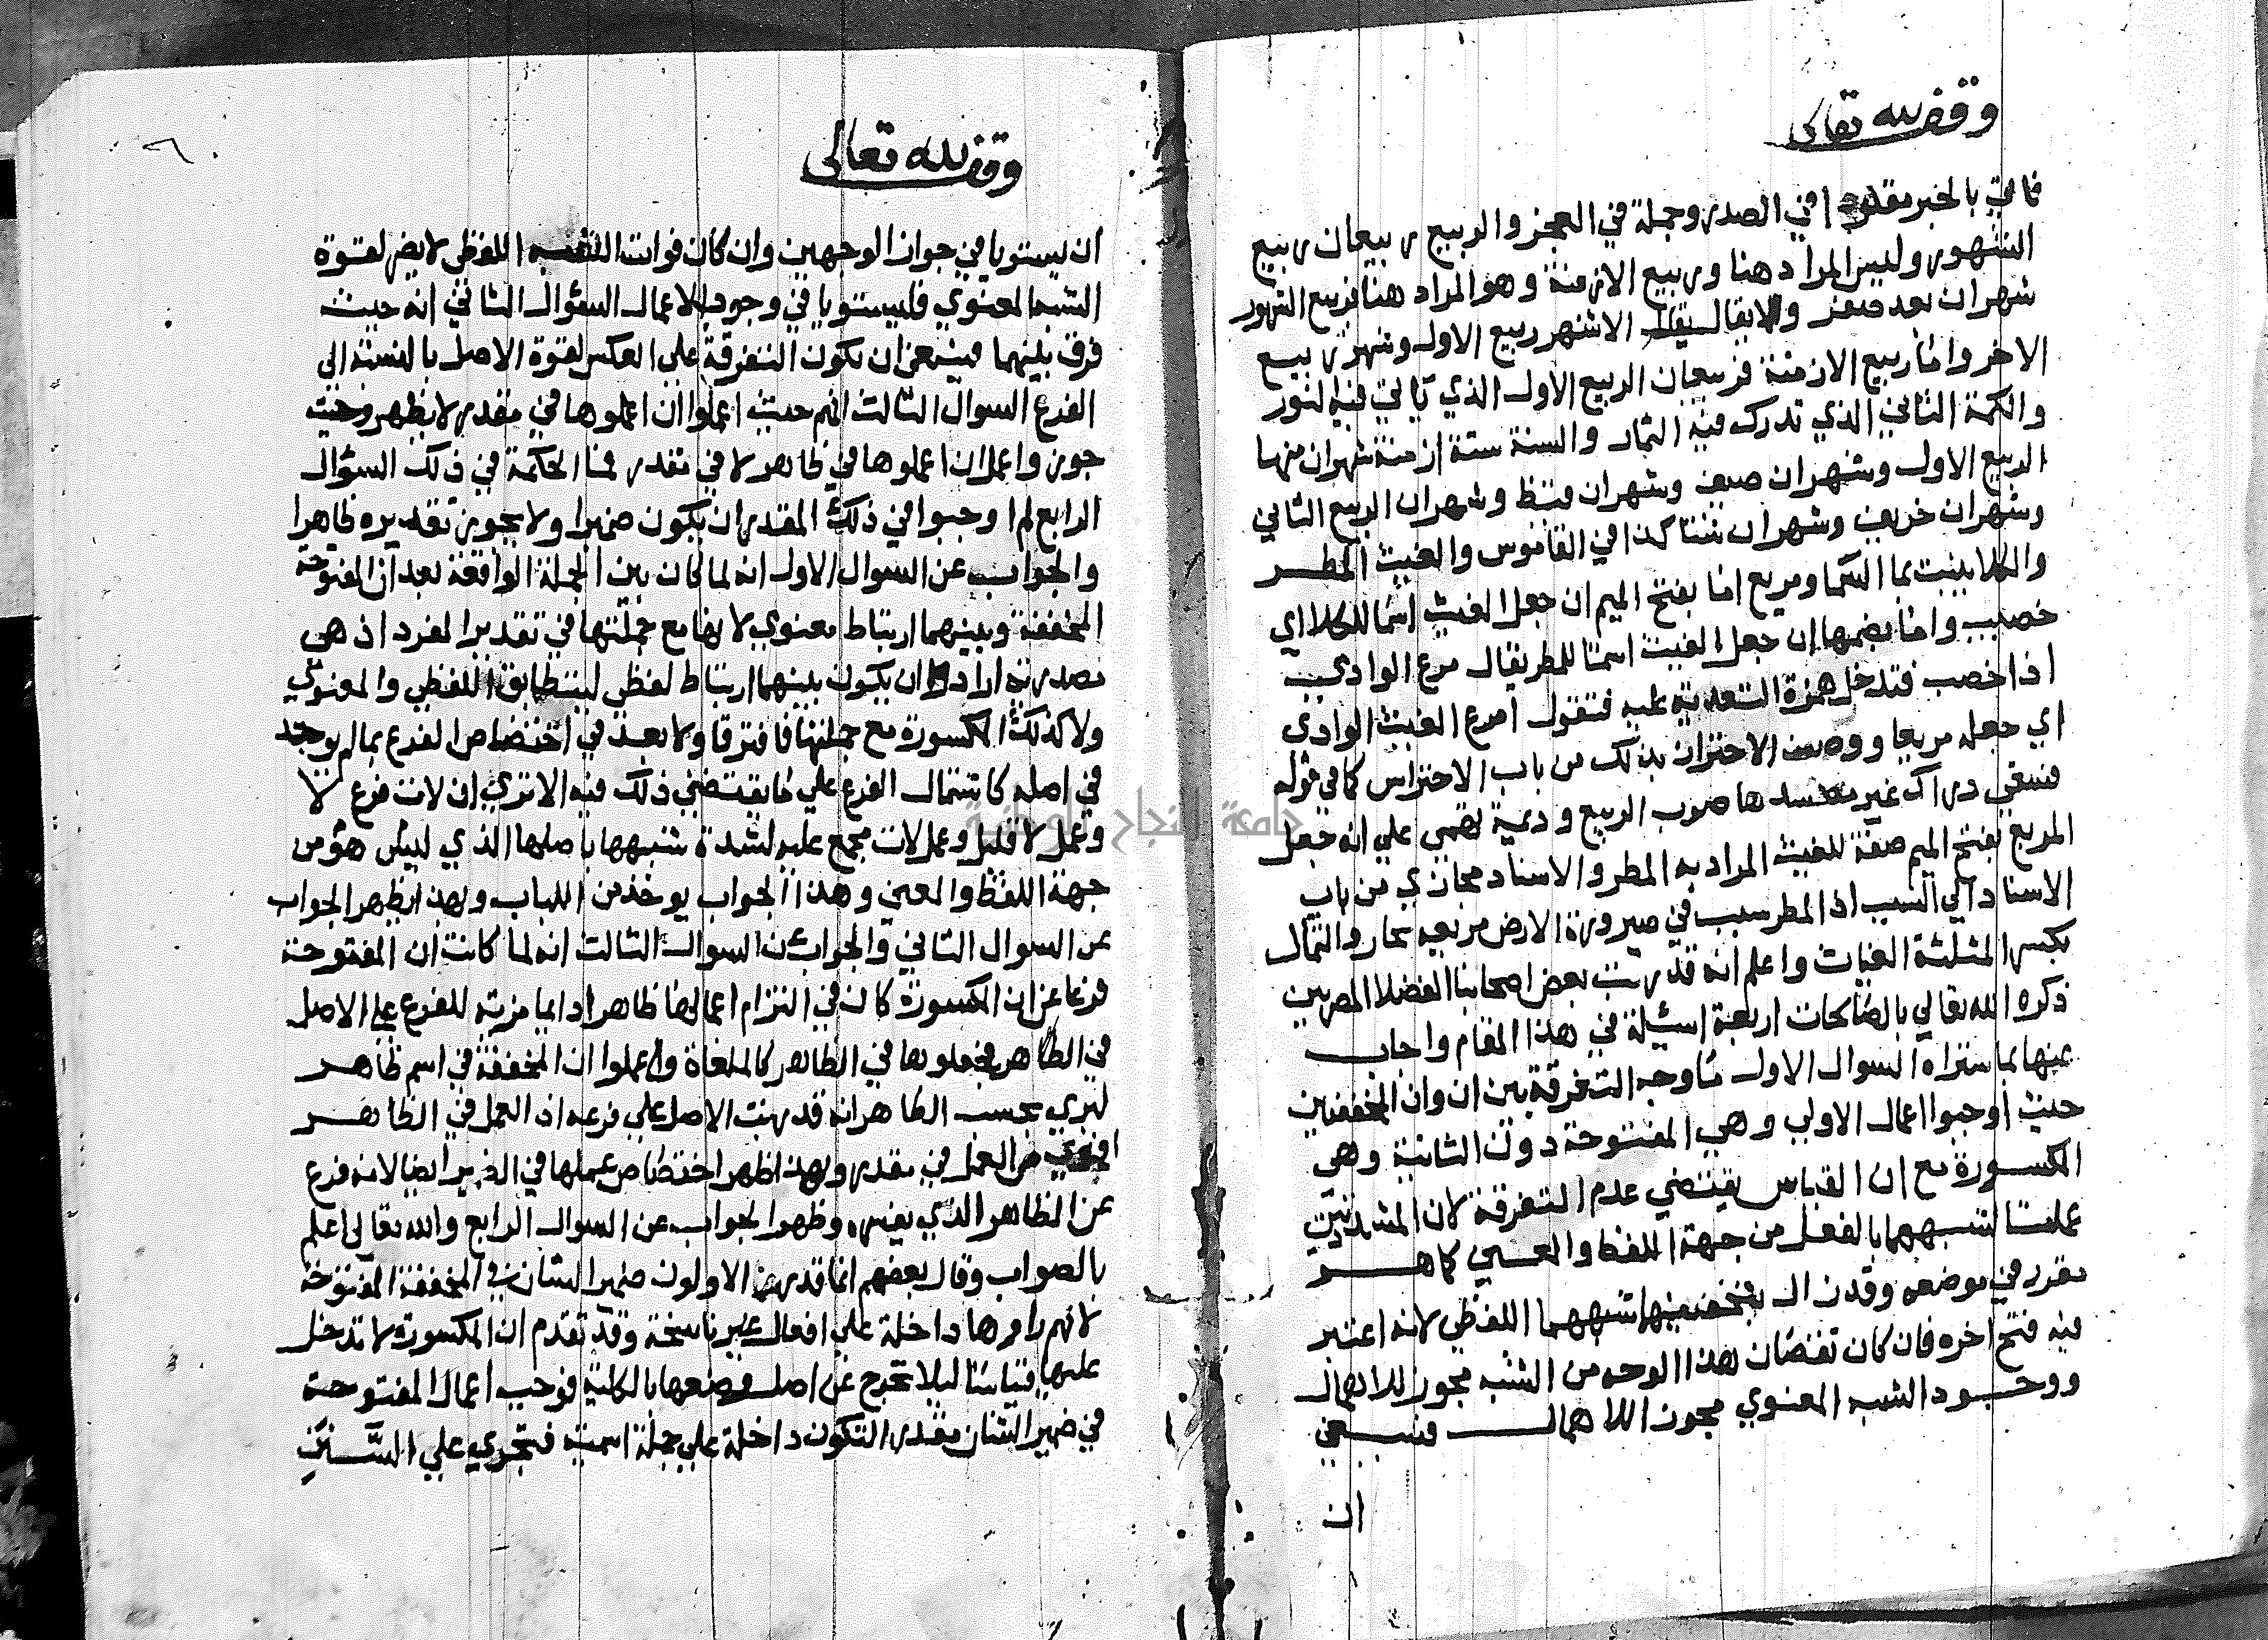 وقف لله تعالى
فاتي بالخبر مفردا في الصدر وجملة في العجز والربيع ربيعان ربيع
الشهور وليس المراد هنا وربيع الازمنة وهو المراد هنا فربيع الشهور
شهران بعد صفر ولا يقال الا شهر ربيع الاول وشهر ربيع
الاخر واما ربيع الازمنة فربيعان الربيع الاول الذي ياتي فيه النور
والكمة الثاني الذي تدرك فيه الثمار والسنة ستة ازمنة شهران منها
الربيع الاول وشهران صيف وشهران قيظ وشهران الربيع الثاني
وشهران خريف وشهران شتا كذا في القاموس والغيث المطر
والكلا ينبت بما السما ومريع اما بفتح الميم ان جعل الغيث اسما للكلا اي
خصيب واما بضمها ان جعل الغيث اسما للمطر يقال مرع الوادي
اذا خصب فتدخل همزة التعدية عليه فتقول امرع الغيث الوادي
اي جعله مريعا ووصف الاحتراز بذلك من باب الاحتراس كما في قوله
فسقى ديارك غير مفسدها صوب الربيع وديمة تهمي على انه جعل
المريع بفتح الميم صفة للغيث المراد به المطر والاسناد مجازي من باب
الاسناد الي السبب اذ المطر سبب في صيرورة الارض مريعه بحار والثمال
بكسر المثلثة الغياث واعلم انه قد رتب بعض اصحابنا الفضلا المصريين
ذكره الله تعالي بالصالحات اربعة اسئلة في هذا المقام واجاب
عنها بما ستراه السوال الاول ما وجه التفرقة بين ان وان المخففين
حيث اوجبوا اعمال الاولي وهي المفتوحة دون الثانية وهي
المكسورة مع ان القياس يقتضي عدم التفرقة لان المشددتين
عملتا لشبههما بالفعل من جهة اللفظ والمعنى كما هو
مقرر في موضعه وقد زال بتخفيفهما شبههما اللفظي لانه اعتبر
فيه فتح اخره فان كان نقصان هذا الوجه من الشبه مجوزا للاهمال
ووجود الشبه المعنوي مجوزا للاهمال فينبغي
ان
وقف لله تعالى
٦
ان يستويا في جواز الوجهين وان كان فوات الشبه اللفظي لا يضر لقوة
الشبه المعنوي فليستويا في وجوب الاعمال السؤال الثاني انه حيث
فرق بينهما فينبغي ان تكون التفرقة علي العكس لقوة الاصل بالنسبة الى
الفرع السوال الثالث انهم حيث اعملوا ان اعملوها في مقدر لا يظهر وحيث
جوزوا عمل ان اعملوها في ظاهر لا في مقدر فما الحكمة في ذلك السؤال
الرابع لم اوجبوا في ذلك المقدر ان يكون ضميرا ولا يجوز تقديره ظاهرا
والجواب عن السوال الاول انه لما كان بين الجملة الواقعة بعد ان المفتوحة
المخففة وبينهما ارتباط معنوي لانها مع جملتها في تقدير المفرد اذ هي
مصدرية ارادوا ان يكون بينهما ارتباط لفظي ليتطابق اللفظي والمعنوي
ولا كذلك المكسورة مع جملتها فافترقا ولا بعد في اختصاص الفرع بما لم يوجد
في اصله كاشتمال الفرع علي ما يقتضي ذلك فيه الا تري ان لات فرع لا
وعمل لا قليل وعمل لات مجمع عليه لشدة شبهها باصلها الذي ليس هو من
جهة اللفظ والمعنى وهذا الجواب يوخذ من اللباب وبهذا يظهر الجواب
عن السوال الثاني والجواب عن السوال الثالث انه لما كانت ان المفتوحة
فرعا عن ان المكسورة كان في التزام اعمالها ظاهرا دايما مزية للفرع على الاصل
في الظاهر فجعلوها في الظاهر كالملغاة واعملوا ان المخففة في اسم ظاهر
ليري بحسب الظاهر انه قد رتب الاصل علي فرعه اذ العمل في الظاهر
اقوي من العمل في مقدر وبهذا ظهر اختصاص عملها في الضمير ايضا لانه فرع
عن الظاهر الذي يفسره وظهر الجواب عن السوال الرابع والله تعالى اعلم
بالصواب وقال بعضهم انما قدر الاولون ضمير الشان في المخففة المفتوحة
لانهم راوها داخلة علي افعال غير ناسخة وقد تقدم ان المكسورة لا تدخل
عليها قياسا ليلا تخرج عن اصل وضعها بالكلية فوجب اعمال المفتوحة
في ضمير الشان مقدر التكون داخلة علي جملة اسمية فتجري علي السنن